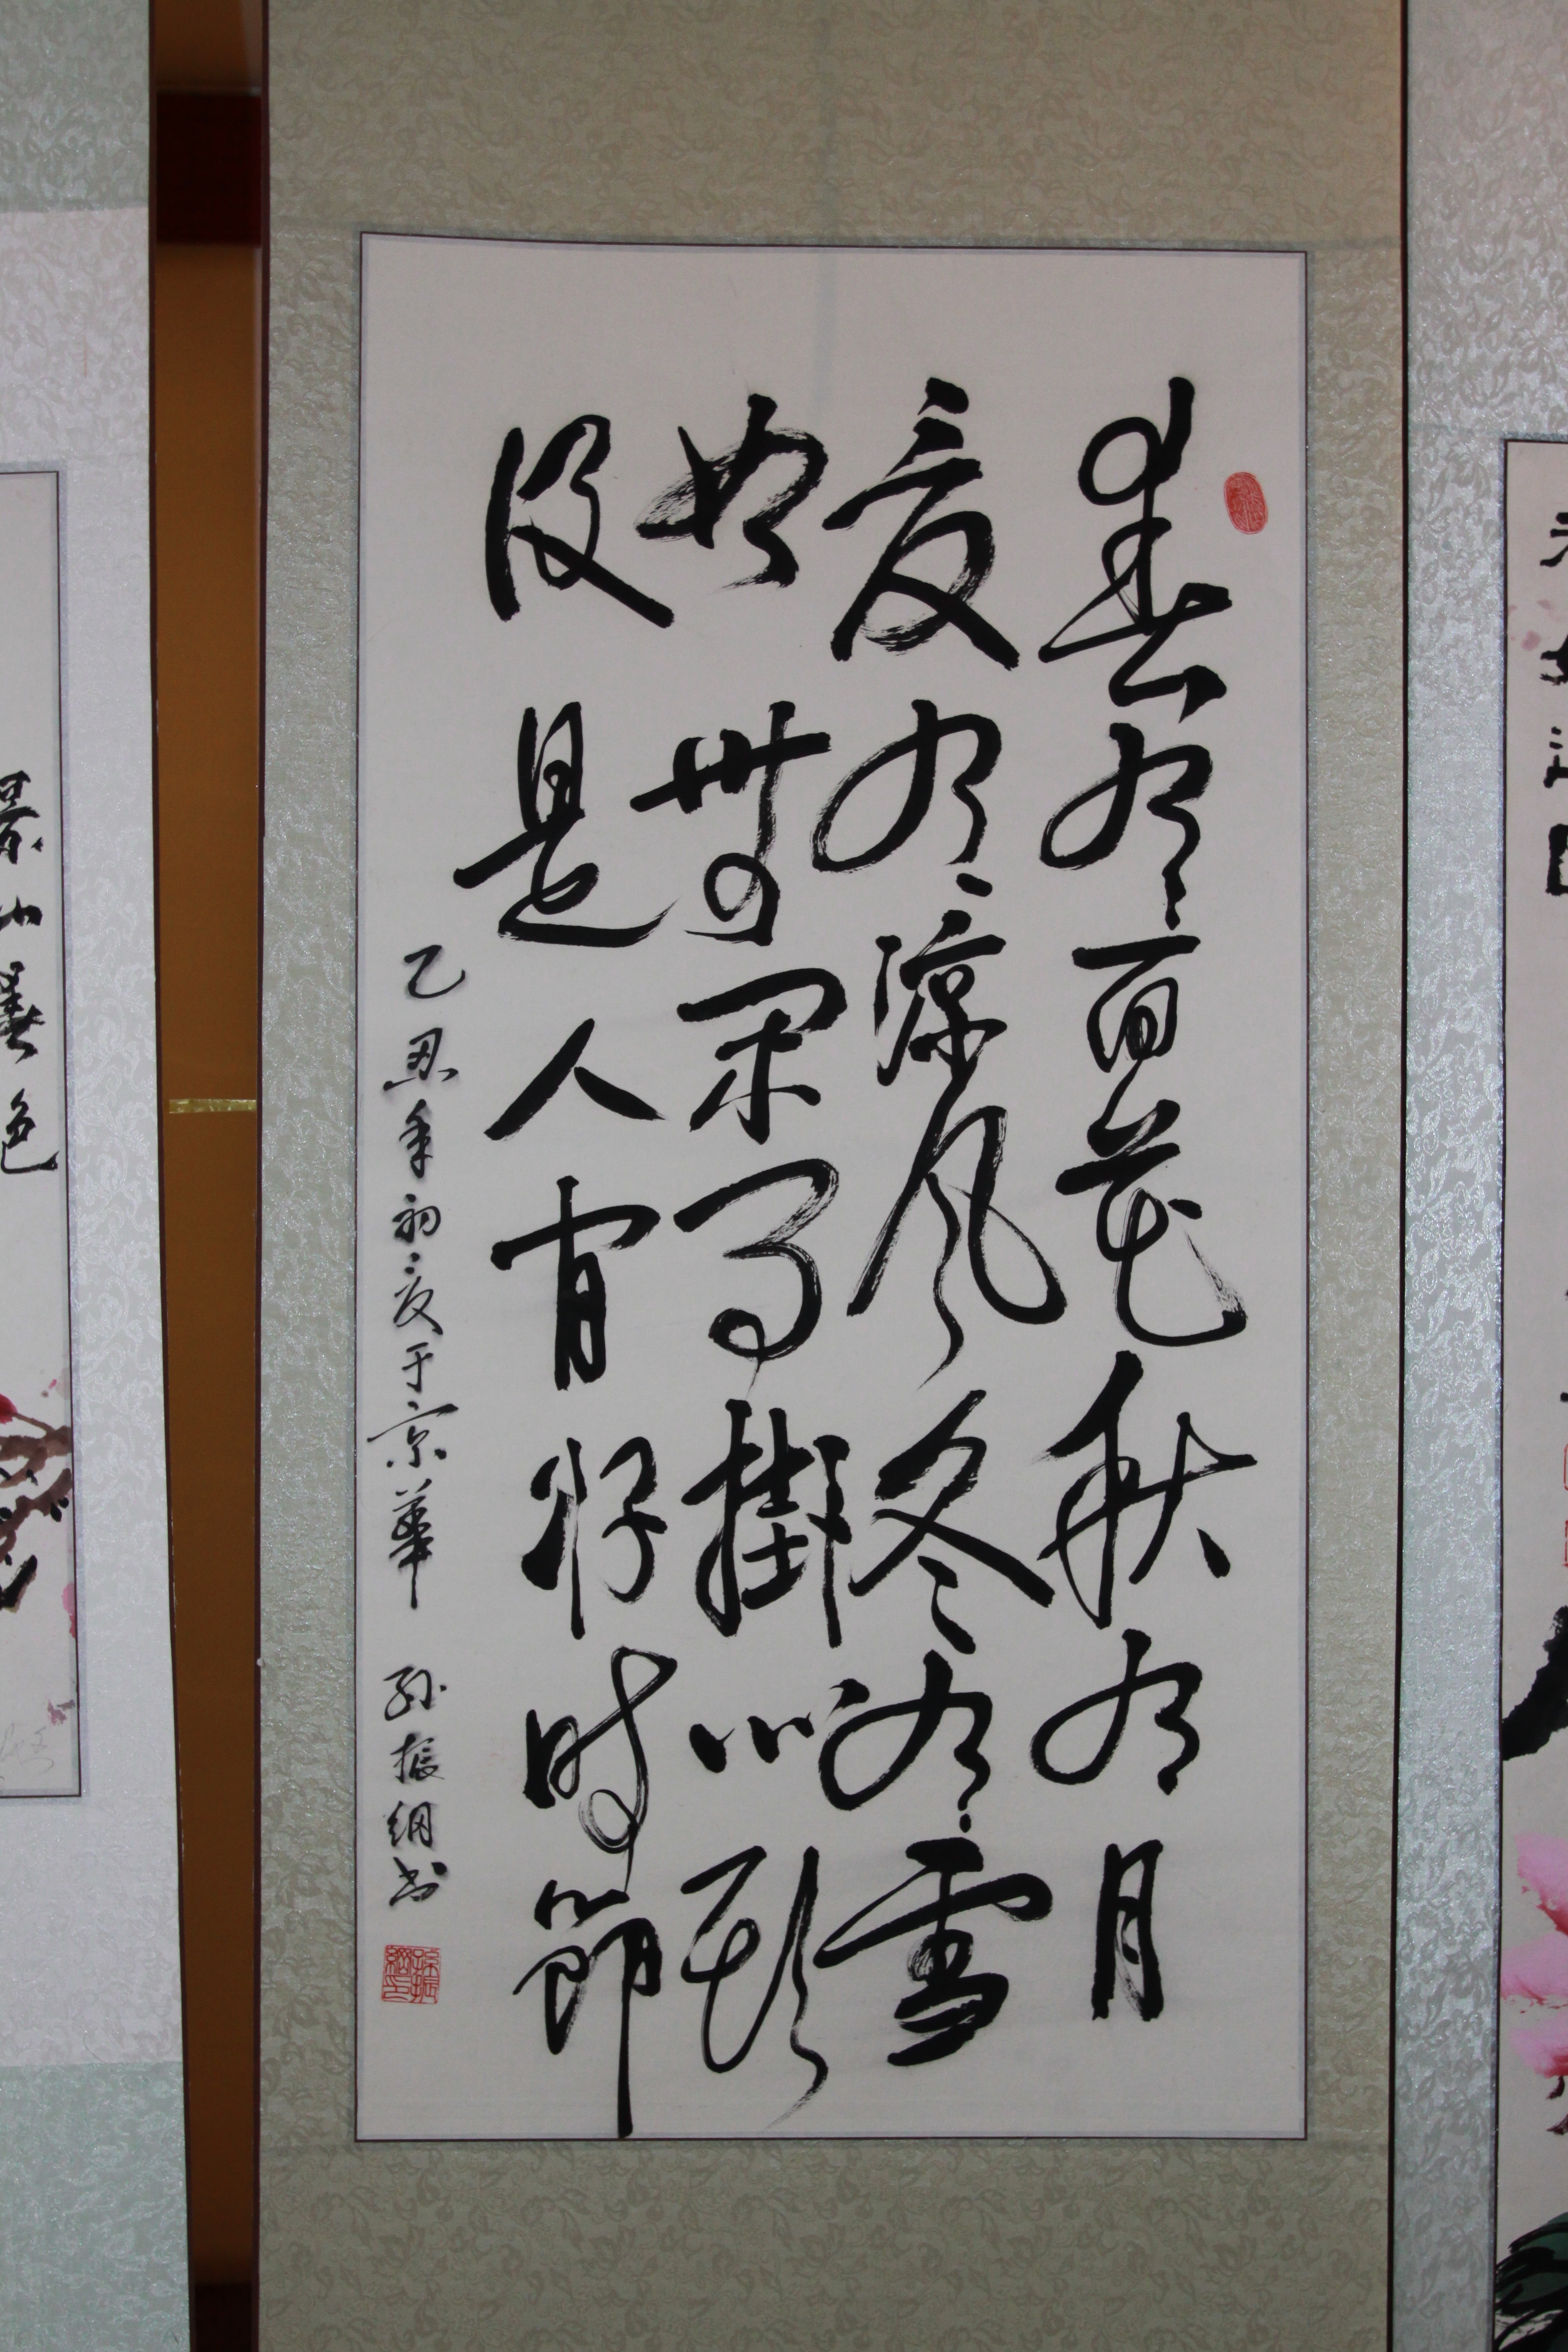 春有百花秋有月
夏有涼风冬有雪
如無閑事掛心頭
便是人间好时節
乙丑年初夏于京華 孙振綱书